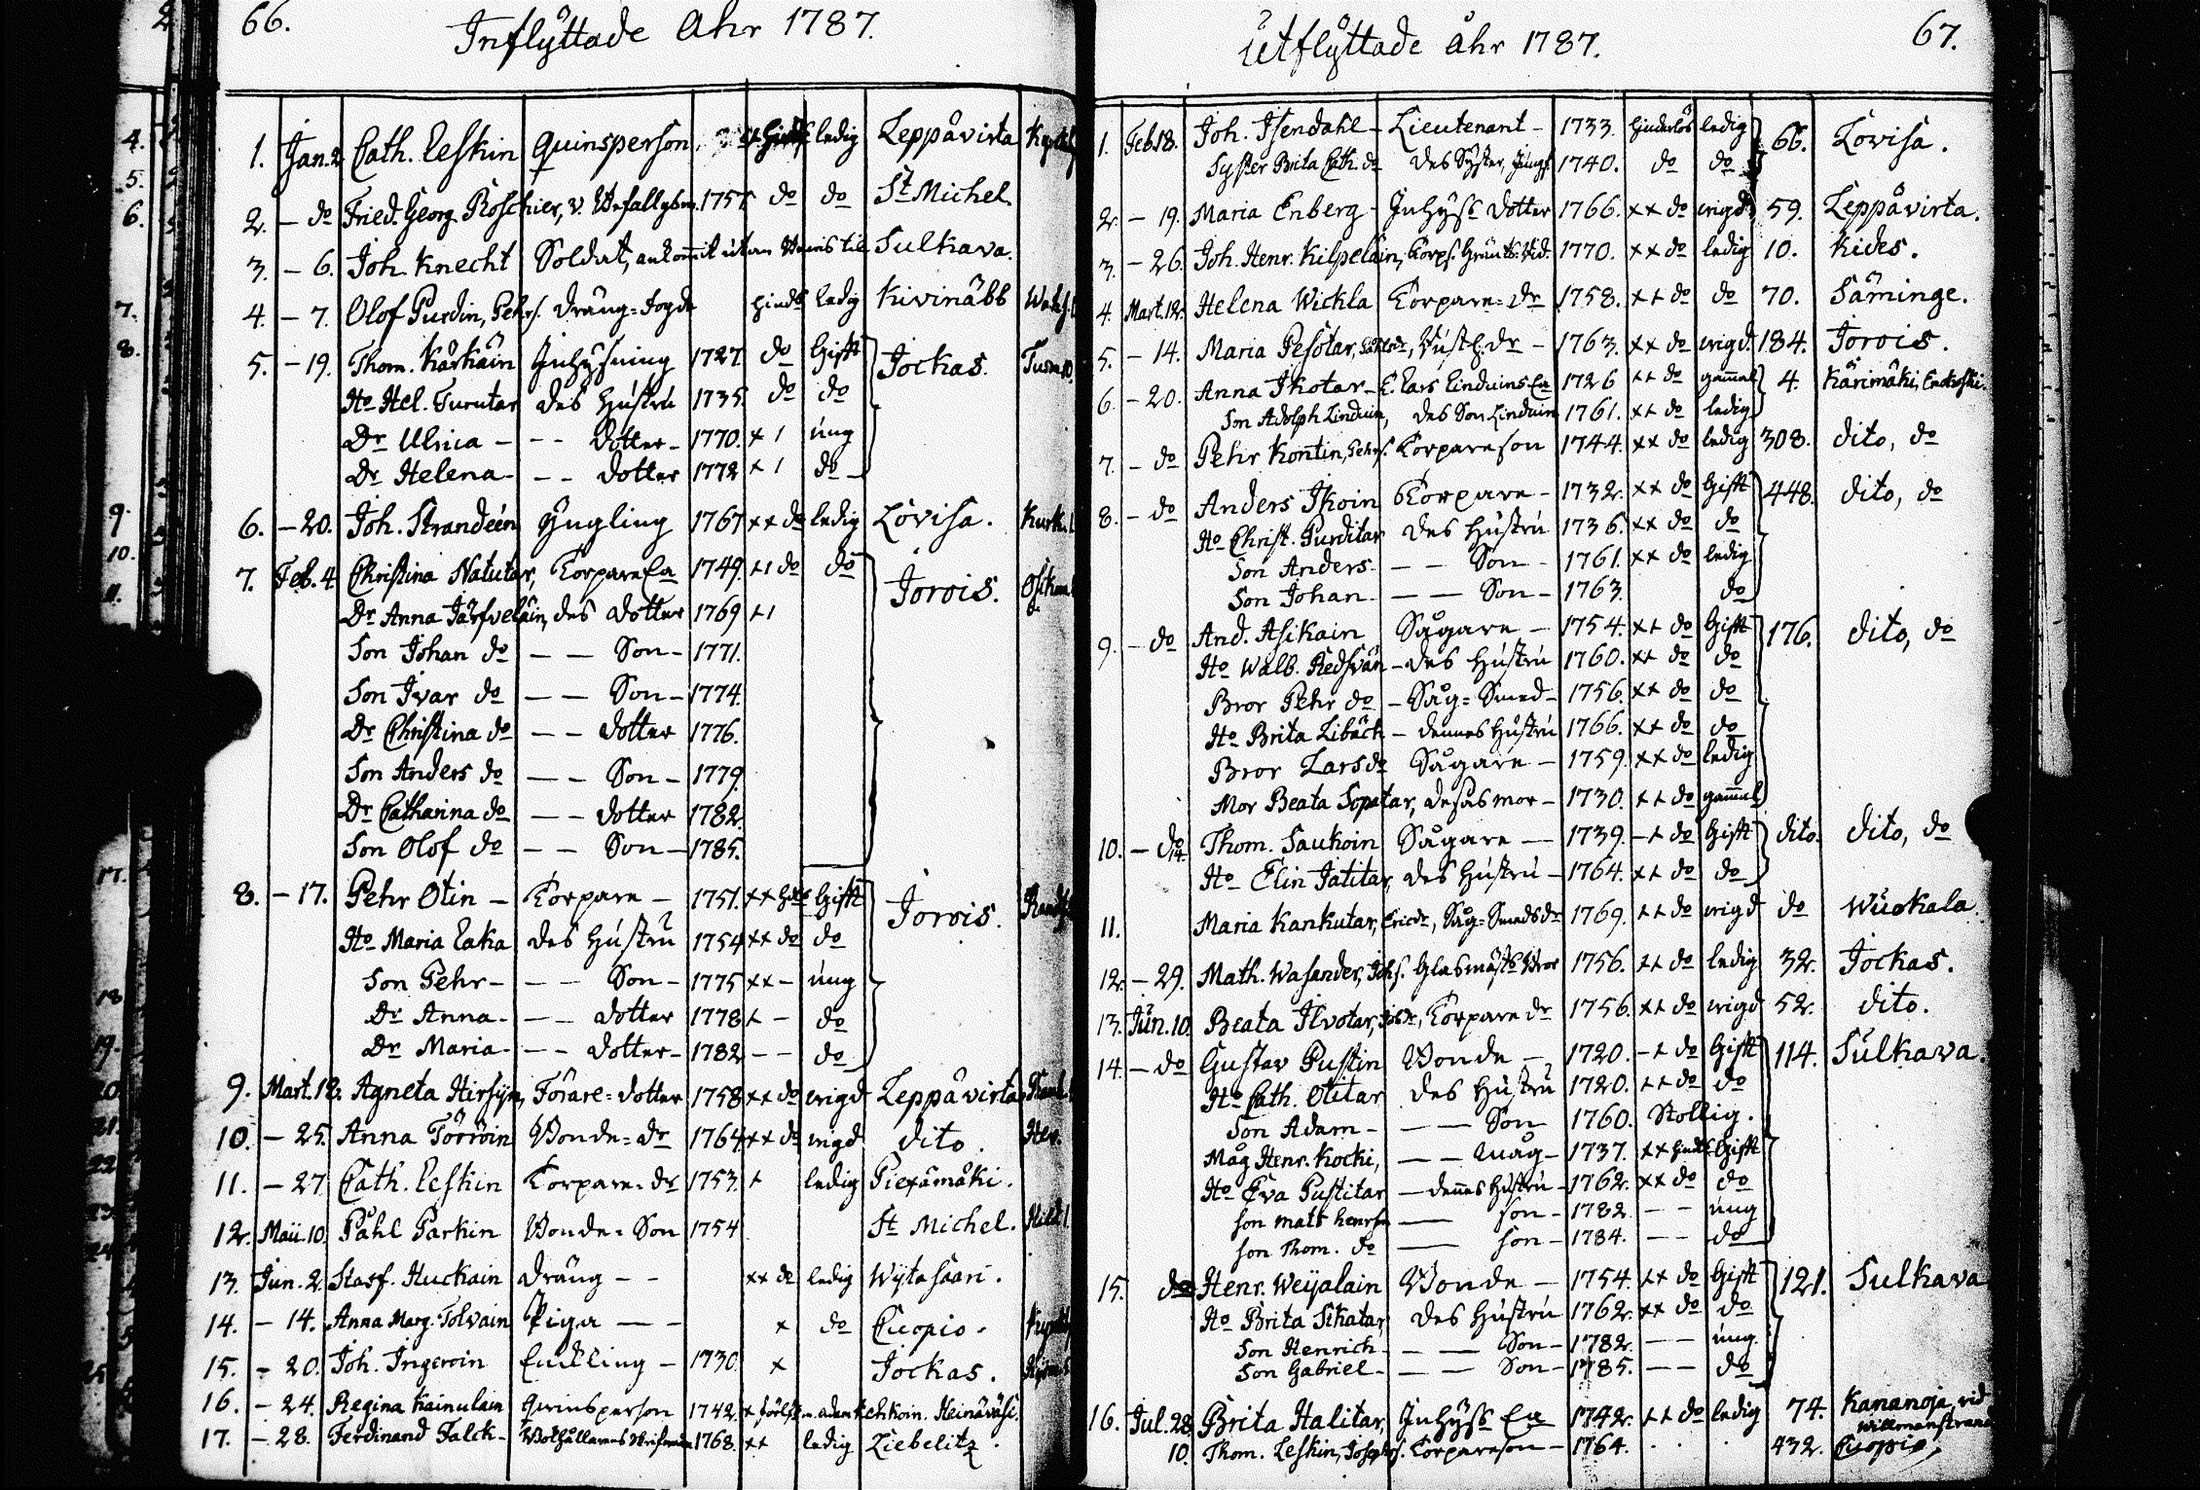 66.
Inflyttade Åhr 1787.
1. Jan. 2. Cath. Leskin Quinsperson ledig Leppävirta
2. – do Fried. Georg Roschier, v. do do St Michel
3. – 6. Joh. Knecht Soldat, Sulkava.
4. – 7. Olof Purdin, Pehrs. Dräng=fogde ledig Kivinäbb
5. – 19. Thom. Kärkäin Inhysning 1727 do Gifft Jockas.
Ho Hel. Turutar des Hustru 1735. do do
Dr Ulrica – – – Dotter – 1770. x 1 ung
Dr Helena – – – Dotter 1772 x 1 do
6. – 20. Joh. Strandeén Yngling 1767 xx do ledig Lovisa.
7. Feb. 4. Christina Natutar, Torpare Ea 1749. x1 do do Jorois.
Dr Anna Järfveläin, des Dotter 1769 x1
Son Johan do – – Son – 1771.
Son Ivar do – – Son – 1774.
Dr Christina do – – Dotter 1776.
Son Anders do – – Son – 1779.
Dr Catharina do – – Dotter 1782.
Son Olof do – – Son – 1785.
8. – 17. Pehr Otin – Torpare – 1751. xx Gifft Jorois.
Ho Maria Laka des Hustru 1754 xx do do
Son Pehr – – – Son – 1775 xx – ung
Dr Anna – – – Dotter 1778 x – do
Dr Maria – – – Dotter – 1782 – – do
9. Mart. 18. Agneta Hirsyn, Förare=dotter 1758 xx do wigd Leppävirta
10. – 25. Anna Törröin Bonde=dr 1764 xx do wigd dito.
11. – 27 Cath. Leskin Torpare=dr 1753. x ledig Piexämäki.
12. Maii. 10. Påhl Parkin Bonde=Son 1754 St Michel.
13. Jun. 2. Staf. Huckain Dräng – – xx do ledig Wijtasaari.
14. – 14. Anna Marg. Tolvain Piga – – x do Cuopio.
15. – 20. Joh. Ingeroin Enckling – 1730 x Jockas.
16. – 24. Regina Kainulain Quinsperson 1742. x Heinäväsi.
17. – 28. Ferdinand Falck – 1768. xx ledig Liebelitz.
67.
Utflyttade åhr 1787.
1. Feb. 18. Joh. Isendahl – Lieutenant – 1733. hinderlös ledig 66. Lovisa.
Syster Brita Cath. do des Syster, Jungf. 1740. do do
2. – 19. Maria Enberg – Inhyss Dotter 1766. xx do wigd 59. Leppävirta.
3. – 26. Joh. Henr. Kilpeläin, 1770. xx do ledig 10. Kides.
4. Mart. 12. Helena Wickla Torpare=dr 1758. xx do do 70. Säminge.
5. – 14. Maria Pesotar, dr – 1763. xx do wigd. 184. Jorois.
6. – 20. Anna Ikotar – E. Lars Linduins Ea 1726 xx do gammal 4. Kärimäki,
Son Adolph Linduin, des Son Linduin 1761. xx do ledig
7. – do Pehr Kontin, Pehrs. Torpareson 1744. xx do ledig 308. dito, do
8. – do Anders Ikoin Torpare – 1732. xx do Gifft 448. dito, do
Ho Christ. Purditar des Hustru 1736. xx do do
Son Anders – – – Son – 1761. xx do ledig
Son Johan – – – Son – 1763. do
9. – do And. Asikain Sågare – 1754. xx do Gifft 176. dito, do
Ho Walb. Redsvän – des Hustru 1760. xx do do
Bror Pehr do – Såg=Smed – 1756. xx do do
Ho Brita Libäck – dennes Hustru 1766. xx do do
Bror Lars do Sågare – 1759. xx do ledig
Mor Beata Sopatar, desas mor – 1730. xx do gammal
10. – do 14. Thom. Saukoin Sågare – 1739. – x do Gifft dito. dito, do
Ho Elin Tatitar, des Hustru – 1764. xx do do
11. Maria Kankutar, Ericdr, Såg=Smeds dr 1769. xx do wigd do Wuokala.
12. – 29. Math. Wasander, Johs. Glasmäst. Bror 1756. xx do ledig 32. Jockas.
13. Jun. 10. Beata Ilvotar, Torpare dr 1756. xx do wigd 52. dito.
14. – do Gustav Pustin Bonde – 1720. – x do Gifft 114. Sulkava.
Ho Cath. Otitar des Hustru 1720. xx do do
Son Adam – – – Son 1760. Stollig.
Måg Henr. Kocki, – – Måg – 1737. xx Gifft
Ho Eva Pustitar – dennes Hustru – 1762. xx do do
son Matts Henrson –– son – 1782. – – ung
son Thom. do –– son – 1784. – – do
15. do Henr. Weijalain Bonde – 1754. xx do Gifft 121. Sulkava
Ho Brita Sikatar, des Hustru 1762. xx do do
Son Henrich – – – Son – 1782. – – ung
Son Gabriel – – – Son – 1785. – – do
16. Jul. 28. Brita Halitar, Inhyss Ea 1742. xx do ledig 74. Kananoja, vid
Willmanstrand
10. Thom. Leskin, Josephs. Torpareson – 1764. 432. Cuopio,